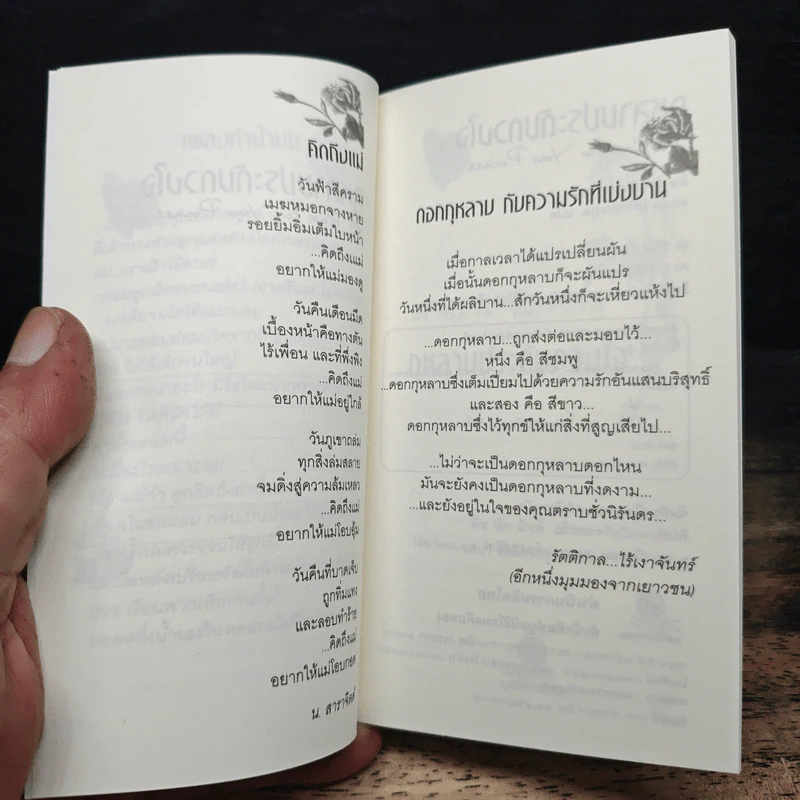 คิดถึงแม่
วันฟ้าสีคราม
เมฆหมอกจางหาย
รอยยิ้มอิ่มเต็มใบหน้า
...คิดถึงแม่
อยากให้แม่มองดู
วันคืนเดือนมืด
เบื้องหน้าคือทางตัน
ไร้เพื่อน และที่พึ่งพิง
...คิดถึงแม่
อยากให้แม่อยู่ใกล้
วันภูเขาถล่ม
ทุกสิ่งล่มสลาย
จมดิ่งสู่ความล้มเหลว
...คิดถึงแม่
อยากให้แม่โอบอุ้ม
วันคืนที่บาดเจ็บ
ถูกทิ่มแทง
และลอบทำร้าย
...คิดถึงแม่
อยากให้แม่โอบกอด
น. สาราจิตต์
ดอกกุหลาบ กับความรักที่เบ่งบาน
เมื่อกาลเวลาได้แปรเปลี่ยนผัน
เมื่อนั้นดอกกุหลาบก็จะผันแปร
วันหนึ่งที่ได้ผลิบาน...สักวันหนึ่งก็จะเหี่ยวแห้งไป
...ดอกกุหลาบ...ถูกส่งต่อและมอบไว้...
หนึ่ง คือ สีชมพู
...ดอกกุหลาบซึ่งเต็มเปี่ยมไปด้วยความรักอันแสนบริสุทธิ์
และสอง คือ สีขาว...
ดอกกุหลาบซึ่งไว้ทุกข์ให้แก่สิ่งที่สูญเสียไป...
...ไม่ว่าจะเป็นดอกกุหลาบดอกไหน
มันจะยังคงเป็นดอกกุหลาบที่งดงาม...
...และยังอยู่ในใจของคุณตราบชั่วนิรันดร...
รัตติกาล...ไร้เงาจันทร์
(อีกหนึ่งมุมมองจากเยาวชน)